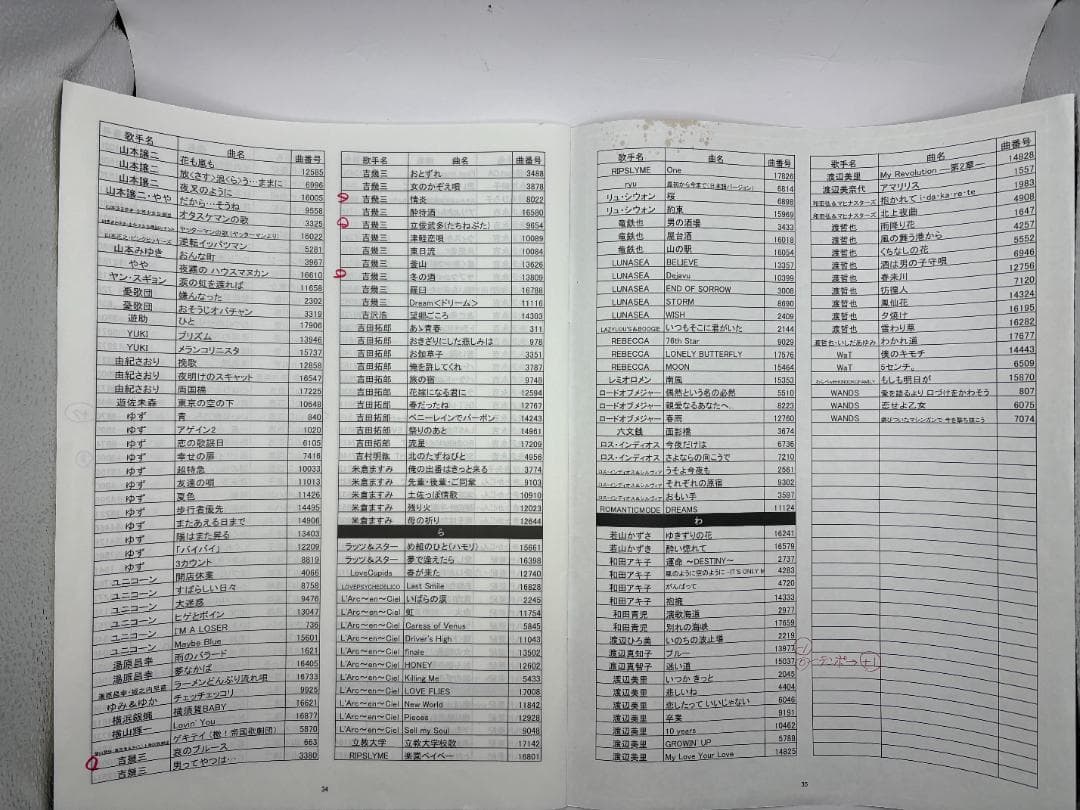 歌手名 曲名 曲番号
山本譲二 花も嵐も 12585
山本譲二 放<さす>浪<らう>…ままに 6996
山本譲二 夜叉のように 16005
山本譲二・やや だから…そうね 9558
オタスケマンの歌 3325
ヤッターマンの歌(ヤッターマンより) 16022
逆転イッパツマン 5281
山本みゆき おんな町 3967
やや 夜霧の ハウスマヌカン 16610
ヤン・スギョン 涙の虹を渡れば 11658
憂歌団 嫌んなった 2302
憂歌団 おそうじオバチャン 3319
遊助 ひと 17906
YUKI プリズム 13946
YUKI メランコリニスタ 15737
由紀さおり 挽歌 12858
由紀さおり 夜明けのスキャット 16547
由紀さおり 両国橋 17225
遊佐未森 東京の空の下 10648
ゆず 青 840
ゆず アゲイン2 1020
ゆず 恋の歌謡日 6105
ゆず 幸せの扉 7416
ゆず 超特急 10033
ゆず 友達の唄 11013
ゆず 夏色 11426
ゆず 歩行者優先 14495
ゆず またあえる日まで 14906
ゆず 陽はまた昇る 13403
ゆず 「バイバイ」 12209
ゆず 3カウント 8819
ユニコーン 開店休業 4066
ユニコーン すばらしい日々 8758
ユニコーン 大迷惑 9476
ユニコーン ヒゲとボイン 13047
ユニコーン I'M A LOSER 736
ユニコーン Maybe Blue 15601
湯原昌幸 雨のバラード 1621
湯原昌幸 夢なかば 16405
湯原昌幸・城之内早苗 ラーメンどんぶり流れ唄 16733
ゆみ&ゆか チェッチェッコリ 9925
横浜銀蝿 横須賀BABY 16621
横山輝一 Lovin' You 16877
ゲキテイ(檄!帝国歌劇団) 5870
吉幾三 哀のブルース 663
吉幾三 男ってやつは… 3380
歌手名 曲名 曲番号
吉幾三 おとずれ 3488
吉幾三 女のかぞえ唄 3878
吉幾三 情炎 8022
吉幾三 酔待酒 16580
吉幾三 立佞武多(たちねぷた) 9654
吉幾三 津軽恋唄 10089
吉幾三 東日流 10084
吉幾三 釜山 13626
吉幾三 冬の酒 13809
吉幾三 羅臼 16788
吉幾三 Dream<ドリーム> 11116
吉沢浩 望郷ごころ 14303
吉田拓郎 あゝ青春 311
吉田拓郎 おきざりにした悲しみは 978
吉田拓郎 お伽草子 3351
吉田拓郎 俺を許してくれ 3787
吉田拓郎 旅の宿 9748
吉田拓郎 花嫁になる君に 12594
吉田拓郎 春だったね 12767
吉田拓郎 ペニーレインでバーボン 14243
吉田拓郎 祭りのあと 14961
吉田拓郎 流星 17209
吉村明紘 北のたずねびと 4956
米倉ますみ 俺の出番はきっと来る 3774
米倉ますみ 先輩・後輩・ご同輩 9103
米倉ますみ 土佐っぽ情歌 10910
米倉ますみ 残り火 12023
米倉ますみ 母の祈り 12644
ら
ラッツ&スター め組のひと(ハモリ) 15661
ラッツ&スター 夢で逢えたら 16398
LoveCupids 春が来た 12740
LOVEPSYCHEDELICO Last Smile 16828
L'Arc~en~Ciel いばらの涙 2245
L'Arc~en~Ciel 虹 11754
L'Arc~en~Ciel Caress of Venus 5845
L'Arc~en~Ciel Driver's High 11043
L'Arc~en~Ciel finale 13502
L'Arc~en~Ciel HONEY 12602
L'Arc~en~Ciel Killing Me 5433
L'Arc~en~Ciel LOVE FLIES 17008
L'Arc~en~Ciel New World 11842
L'Arc~en~Ciel Pieces 12928
L'Arc~en~Ciel Sell my Soul 9048
立教大学 立教大学校歌 17142
RIPSLYME 楽園ベイベー 16801
34
歌手名 曲名 曲番号
RIPSLYME One 17826
ryu 最初から今まで(日本語バージョン) 6814
リュ・シウォン 桜 6898
リュ・シウォン 約束 15969
竜鉄也 男の酒場 3433
竜鉄也 屋台酒 16018
竜鉄也 山の駅 16054
LUNASEA BELIEVE 13357
LUNASEA Dejavu 10399
LUNASEA END OF SORROW 3006
LUNASEA STORM 8690
LUNASEA WISH 2409
LAZYLOU'S&BOOGIE いつもそこに君がいた 2144
REBECCA 76th Star 9029
REBECCA LONELY BUTTERFLY 17576
REBECCA MOON 15464
レミオロメン 南風 15353
ロードオブメジャー 偶然という名の必然 5510
ロードオブメジャー 親愛なるあなたへ 8223
ロードオブメジャー 春雨 12760
六文銭 面影橋 3674
ロス・インディオス 今夜だけは 6736
ロス・インディオス さよならの向こうで 7210
ロス・インディオス&シルヴィア うそよ今夜も 2561
ロス・インディオス&シルヴィア それぞれの原宿 9302
ロス・インディオス&シルヴィア おもい手 3597
ROMANTICMODE DREAMS 11124
わ
若山かずさ ゆきずりの花 16241
若山かずさ 酔い惚れて 16579
和田アキ子 運命 ~DESTINY~ 2737
和田アキ子 風のように空のように ~IT'S ONLY M 4283
和田アキ子 がんばって 4720
和田アキ子 抱擁 14333
和田青児 演歌海道 2977
和田青児 別れの海峡 17659
渡辺ひろ美 いのちの波止場 2219
渡辺真知子 ブルー 13977
渡辺真智子 迷い道 15037
渡辺美里 いつか きっと 2045
渡辺美里 悲しいね 4404
渡辺美里 恋したって いいじゃない 6046
渡辺美里 卒業 9191
渡辺美里 10 years 10462
渡辺美里 GROWIN' UP 5789
渡辺美里 My Love Your Love 14825
テンポ→ +1
歌手名 曲名
渡辺美里 My Revolution ―第2章― 14828
渡辺美奈代 アマリリス 1557
和田弘&マヒナスターズ 抱かれて i・da・ka・re・te 1983
和田弘&マヒナスターズ 北上夜曲 4908
渡哲也 雨降り花 1647
渡哲也 風の舞う港から 4257
渡哲也 くちなしの花 5552
渡哲也 酒は男の子守唄 6946
渡哲也 春来川 12756
渡哲也 彷徨人 7120
渡哲也 鳳仙花 14324
渡哲也 夕焼け 16195
渡哲也 雪わり草 16282
渡哲也・いしだあゆみ わかれ道 17677
WaT 僕のキモチ 14443
WaT 5センチ。 6508
もしも明日が 15870
WANDS 愛を語るより 口づけをかわそう 807
WANDS 恋せよ乙女 6075
WANDS 錆びついたマシンガンで 今を撃ち抜こう 7074
35